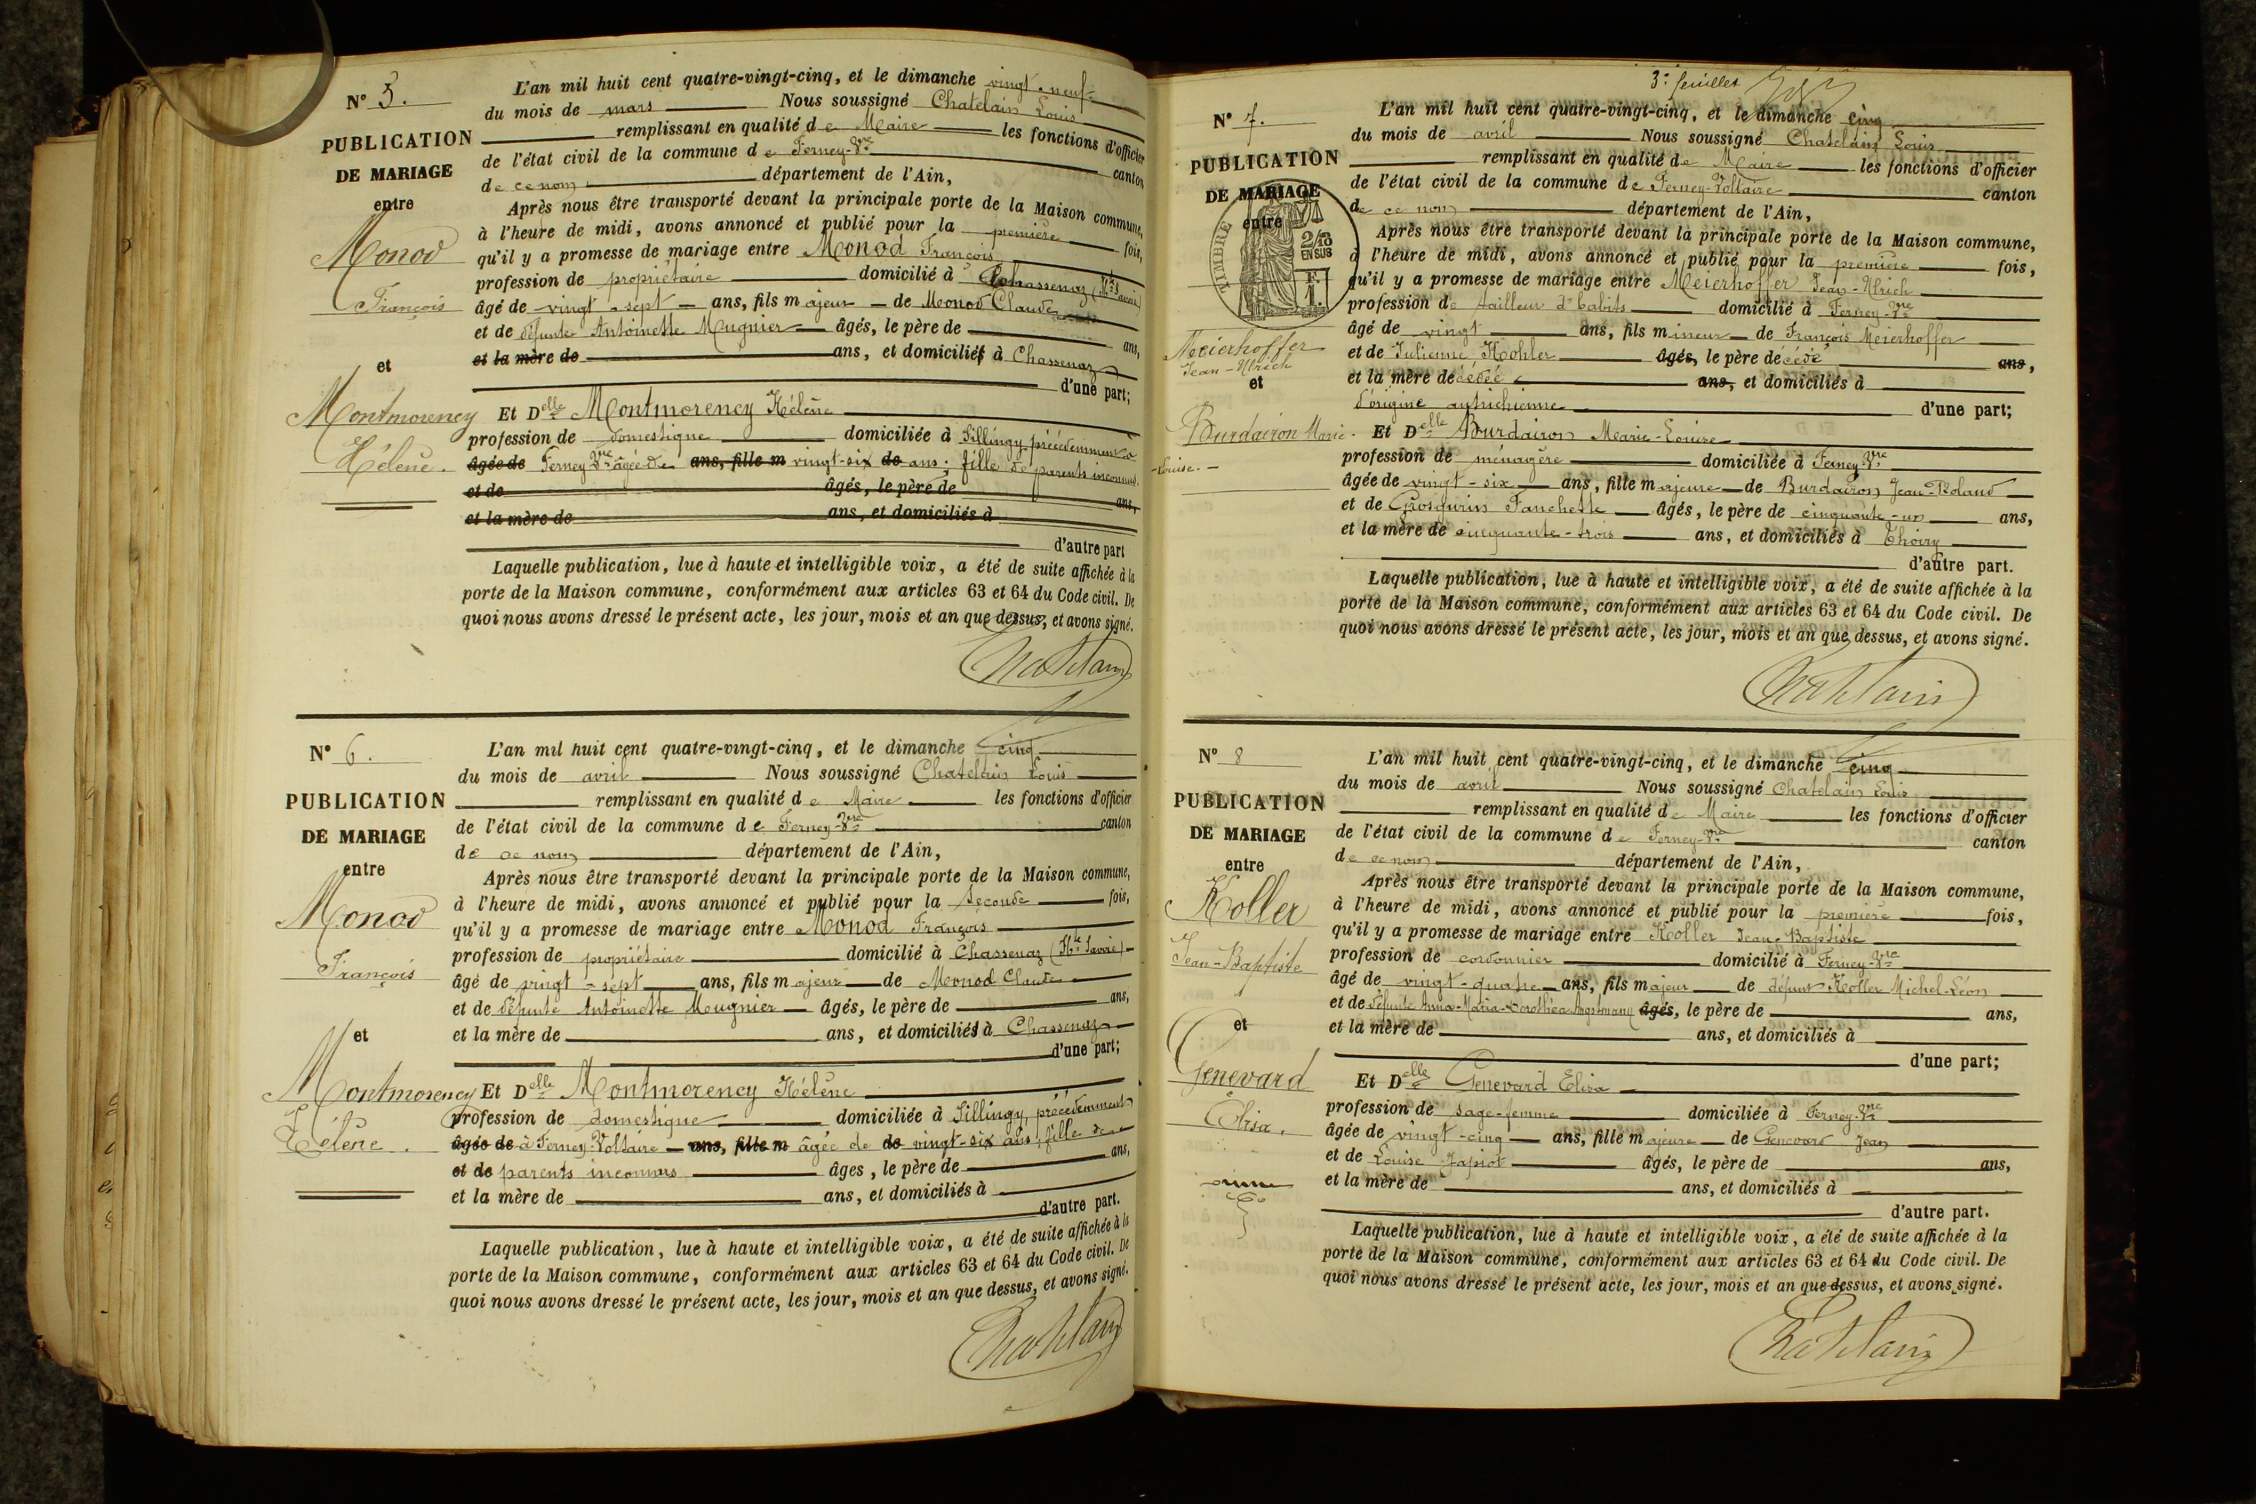 N° 5.
PUBLICATION
DE MARIAGE
entre
Monod
François
et
Montmorency
Hélène.
L'an mil huit cent quatre-vingt-cinq, et le dimanche vingt-neuf
du mois de mars Nous soussigné Chatelain Louis
remplissant en qualité de Maire les fonctions d'officier
de l'état civil de la commune de Ferney-Vre canton
de ce nom département de l'Ain,
Après nous être transporté devant la principale porte de la Maison commune,
à l'heure de midi, avons annoncé et publié pour la première fois,
qu'il y a promesse de mariage entre Monod François
profession de propriétaire domicilié à Chassenaz (Hte Savoie)
âgé de vingt-sept ans, fils majeur de Monod Claude
et de défunte Antoinette Mugnier âgés, le père de ans,
et la mère de ans, et domiciliés à Chassenaz
d'une part;
Et Delle Montmorency Hélène
profession de domestique domiciliée à Sillingy, précédemment à
âgée de Ferney-Vre âgée de ans, fille m vingt-six de ans; fille de parents inconnus.
et de âgés, le père de ans,
et la mère de ans, et domiciliés à
d'autre part
Laquelle publication, lue à haute et intelligible voix, a été de suite affichée à la
porte de la Maison commune, conformément aux articles 63 et 64 du Code civil. De
quoi nous avons dressé le présent acte, les jour, mois et an que dessus, et avons signé.
Chatelain
N° 6.
PUBLICATION
DE MARIAGE
entre
Monod
François
et
Montmorency
Hélène.
L'an mil huit cent quatre-vingt-cinq, et le dimanche cinq
du mois de avril Nous soussigné Chatelain Louis
remplissant en qualité de Maire les fonctions d'officier
de l'état civil de la commune de Ferney-Vre canton
de ce nom département de l'Ain,
Après nous être transporté devant la principale porte de la Maison commune,
à l'heure de midi, avons annoncé et publié pour la seconde fois,
qu'il y a promesse de mariage entre Monod François
profession de propriétaire domicilié à Chassenaz (Hte Savoie)
âgé de vingt-sept ans, fils majeur de Monod Claude
et de défunte Antoinette Mougnier âgés, le père de ans,
et la mère de ans, et domiciliés à Chassenaz
d'une part;
Et Delle Montmorency Hélène
profession de domestique domiciliée à Sillingy, précédemment
âgée de à Ferney-Voltaire ans, fille m âgée de de vingt-six ans, fille de
et de parents inconnus âgés, le père de ans,
et la mère de ans, et domiciliés à
d'autre part.
Laquelle publication, lue à haute et intelligible voix, a été de suite affichée à la
porte de la Maison commune, conformément aux articles 63 et 64 du Code civil. De
quoi nous avons dressé le présent acte, les jour, mois et an que dessus, et avons signé.
Chatelain
3e feuillet
N° 7.
PUBLICATION
DE MARIAGE
entre
TIMBRE
2/10
EN SUS
F.
1.
Meierhoffer
Jean-Ulrich
et
Burdairon Marie-
-Louise.
L'an mil huit cent quatre-vingt-cinq, et le dimanche cinq
du mois de avril Nous soussigné Chatelain Louis
remplissant en qualité de Maire les fonctions d'officier
de l'état civil de la commune de Ferney-Voltaire canton
de ce nom département de l'Ain,
Après nous être transporté devant la principale porte de la Maison commune,
à l'heure de midi, avons annoncé et publié pour la première fois,
qu'il y a promesse de mariage entre Meierhoffer Jean-Ulrich
profession de tailleur d'habits domicilié à Ferney-Vre
âgé de vingt ans, fils mineur de François Meierhoffer
et de Julienne Kohler âgés, le père décédé ans,
et la mère décédée ans, et domiciliés à
d'origine autrichienne d'une part;
Et Delle Burdairon Marie-Louise
profession de ménagère domiciliée à Ferney-Vre
âgée de vingt-six ans, fille majeure de Burdairon Jean-Roland
et de Grosgurin Fanchette âgés, le père de cinquante-un ans,
et la mère de cinquante-trois ans, et domiciliés à Thoiry
d'autre part.
Laquelle publication, lue à haute et intelligible voix, a été de suite affichée à la
porte de la Maison commune, conformément aux articles 63 et 64 du Code civil. De
quoi nous avons dressé le présent acte, les jour, mois et an que dessus, et avons signé.
Chatelain
N° 8
PUBLICATION
DE MARIAGE
entre
Koller
Jean-Baptiste
et
Genevard
Elisa.
L'an mil huit cent quatre-vingt-cinq, et le dimanche cinq
du mois de avril Nous soussigné Chatelain Louis
remplissant en qualité de Maire les fonctions d'officier
de l'état civil de la commune de Ferney-Vre canton
de ce nom département de l'Ain,
Après nous être transporté devant la principale porte de la Maison commune,
à l'heure de midi, avons annoncé et publié pour la première fois,
qu'il y a promesse de mariage entre Koller Jean-Baptiste
profession de cordonnier domicilié à Ferney-Vre
âgé de vingt-quatre ans, fils majeur de défunt Koller Michel-Léon
et de défunte Anna-Maria-Dorothéa Angstmann âgés, le père de ans,
et la mère de ans, et domiciliés à
d'une part;
Et Delle Genevard Elisa
profession de sage-femme domiciliée à Ferney-Vre
âgée de vingt-cinq ans, fille majeure de Genevard Jean
et de Louise Japiot âgés, le père de ans,
et la mère de ans, et domiciliés à
d'autre part.
Laquelle publication, lue à haute et intelligible voix, a été de suite affichée à la
porte de la Maison commune, conformément aux articles 63 et 64 du Code civil. De
quoi nous avons dressé le présent acte, les jour, mois et an que dessus, et avons signé.
Chatelain